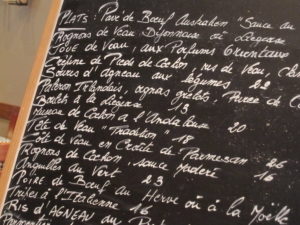 PLATS: Pavé de Bœuf Australien "Sauce au
Rognons de Veau Dijonnaise ou Liégeoise
Joue de Veau, aux Parfums Orientaux
Crépine de Pieds de Cochon, ris de Veau,
Souris d'Agneau aux légumes 22
Irlandais, oignons grelots, Purée de
Boulets à la Liégeoise 13
Museau de Cochon à l'Andalouse
Tête de Veau "Tradition" 18 20
de Veau en Croûte de Parmesan 26
Rognons de Cochon, sauce madère 16
Anguilles au Vert 23
Poire de Bœuf au Herve ou à la Moëlle
Tripes à l'Italienne 16
Ris d'AGNEAU au